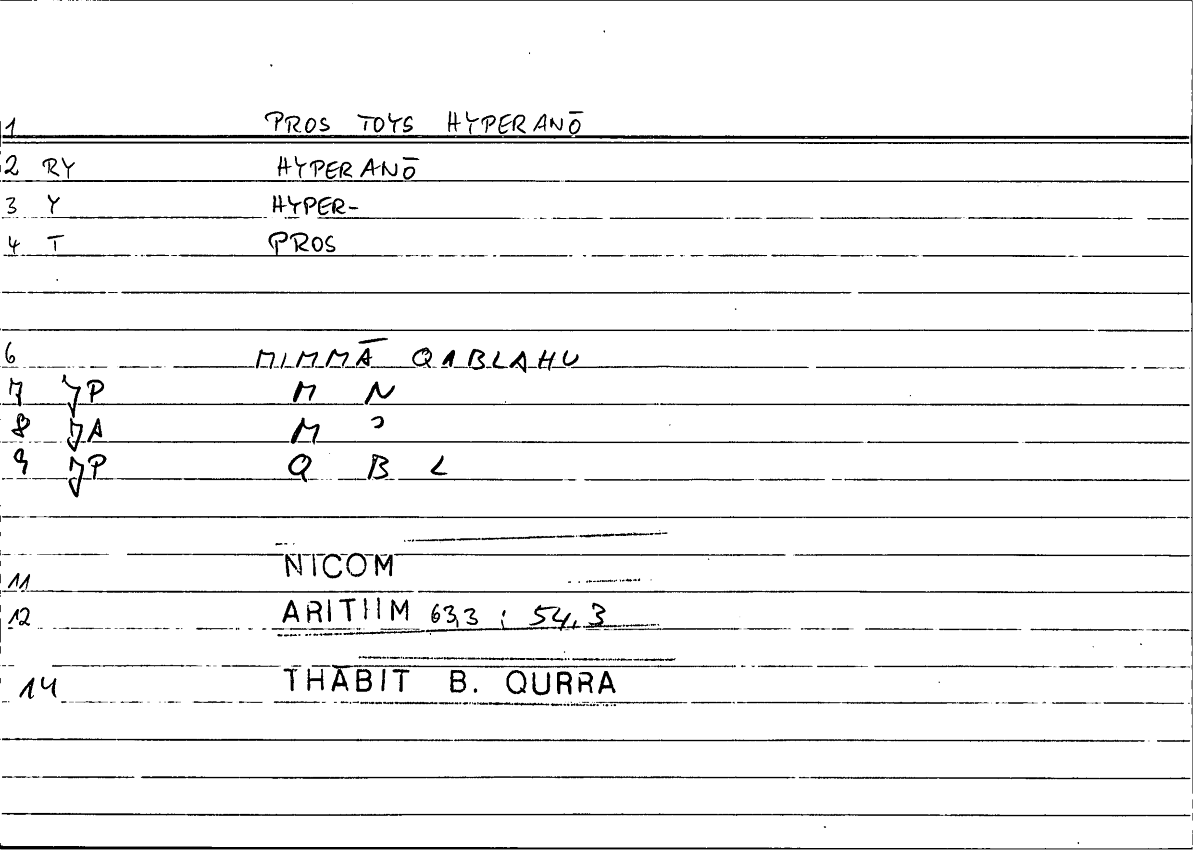 1 PROS TOYS HYPERANŌ
2 RY HYPERANŌ
3 Y HYPER-
4 T PROS
6 MIMMĀ QABLAHU
7 JP M N
8 JA M ʾ
9 JP Q B L
11 NICOM
12 ARITIIM 63,3 ; 54,3
14 THĀBIT B. QURRA